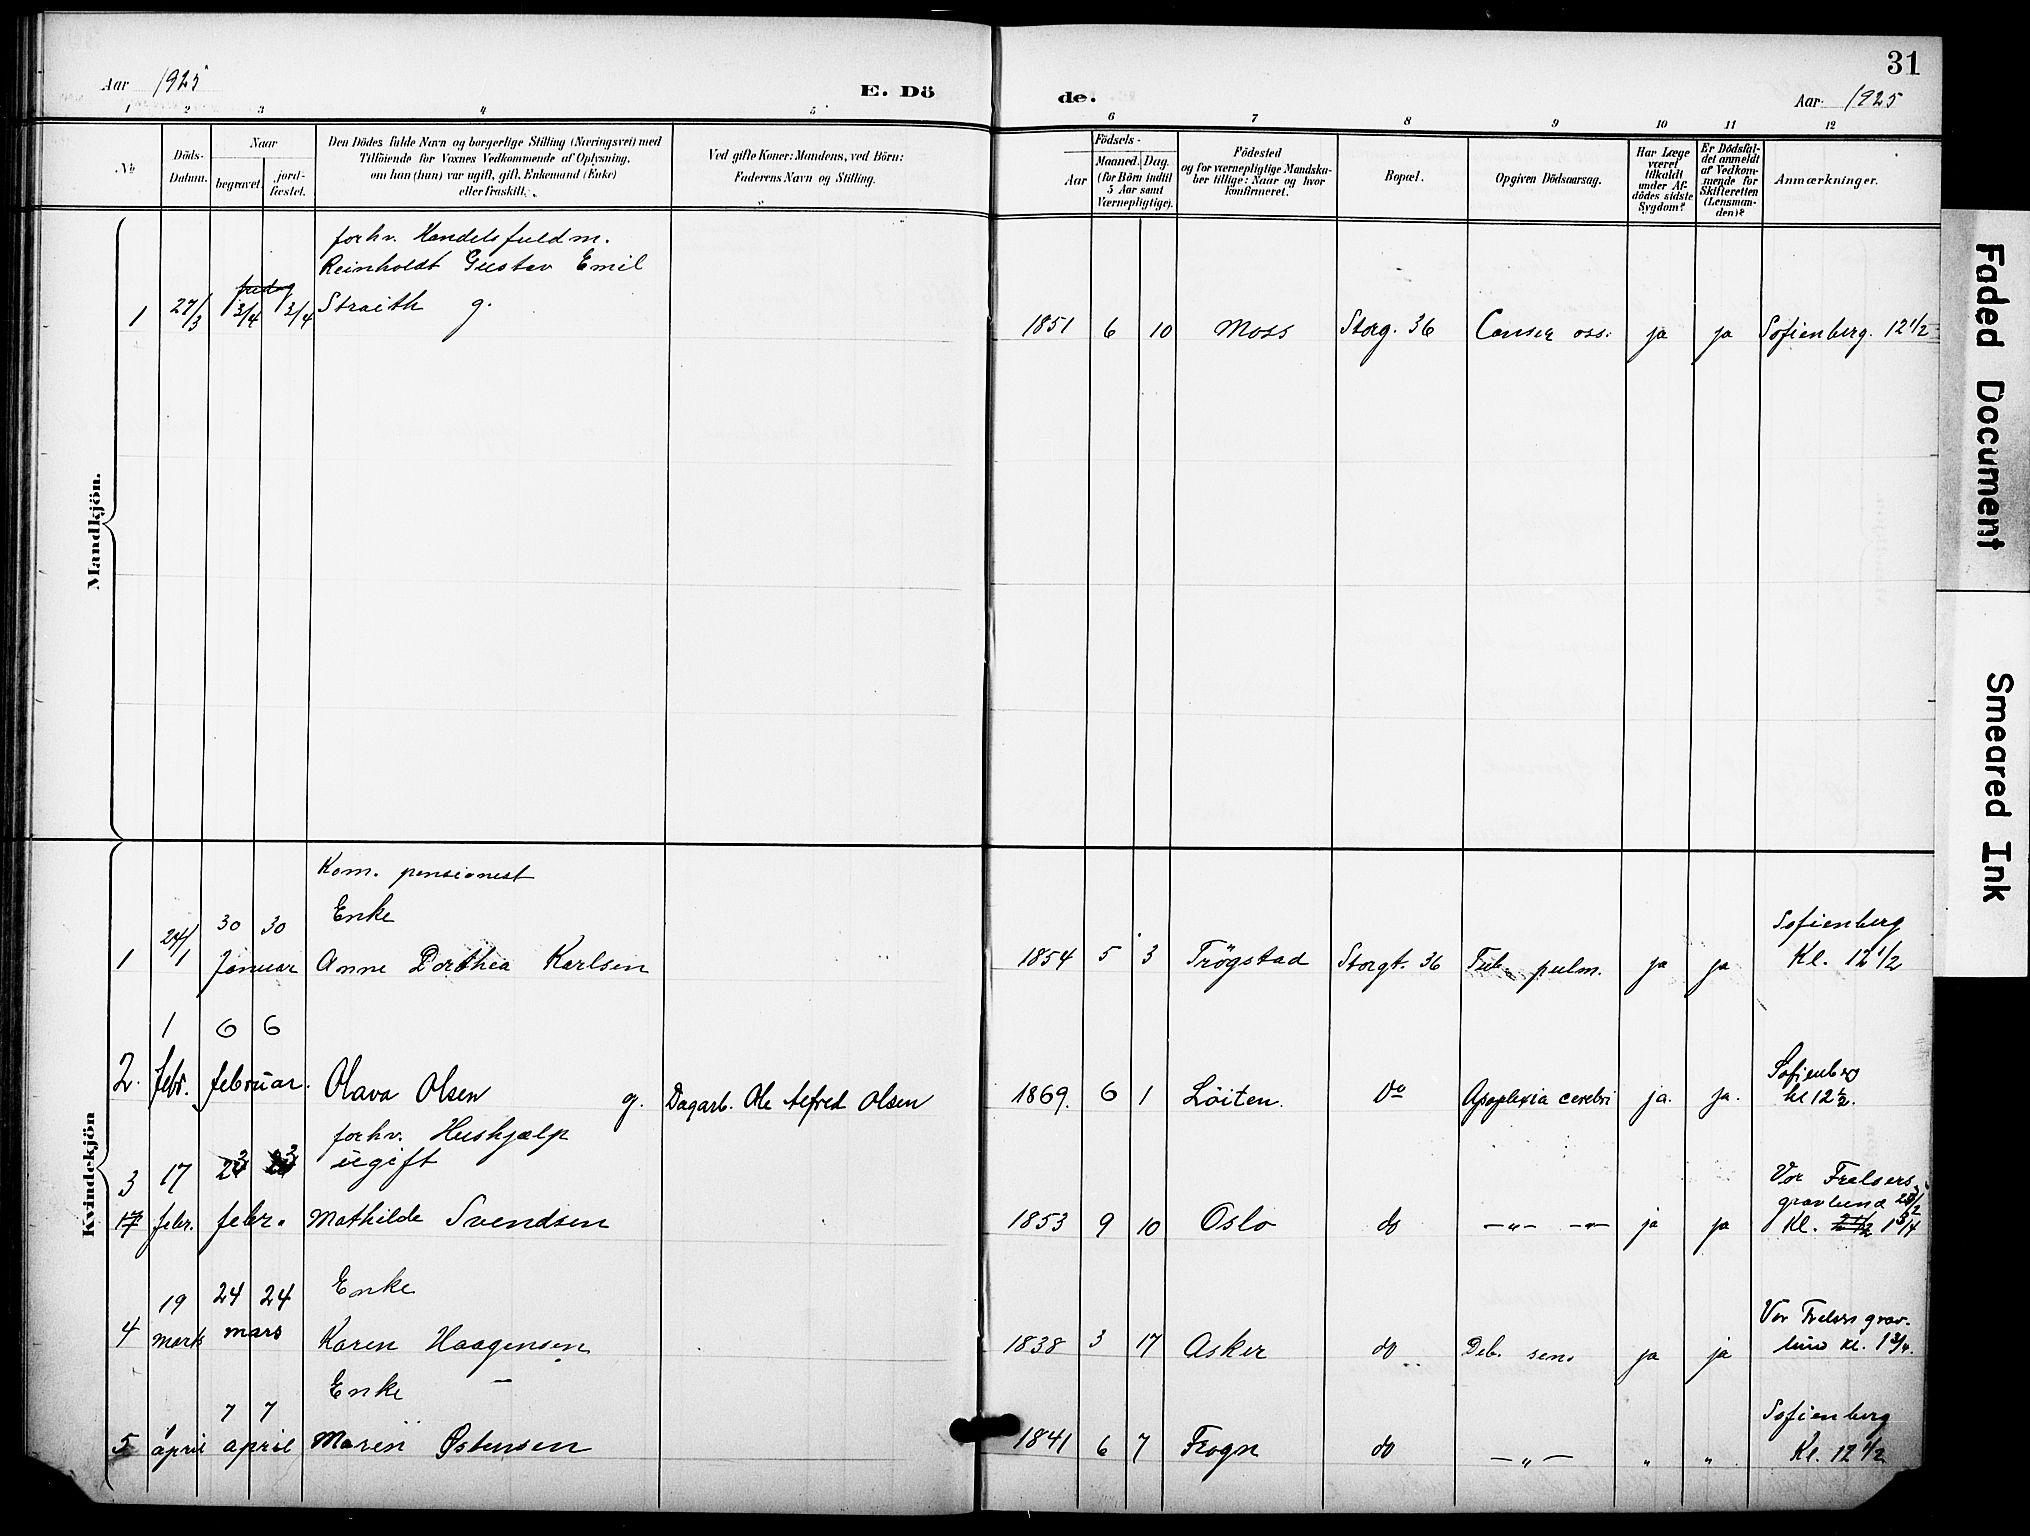 31
Aar 1925
E. Dö
de.
Aar 1925
1 2 3 4 5 6 7 8 9 10 11 12
№
Döds-
Datum.
Naar
begravet.
jord-
fæstet.
Den Dödes fulde Navn og borgerlige Stilling (Næringsvei) med
Tilföiende for Voxnes Vedkommende af Oplysning,
om han (hun) var ugift, gift, Enkemand (Enke)
eller fraskilt.
Ved gifte Koner: Mandens, ved Börn:
Faderens Navn og Stilling.
Födsels-
Aar
Maaned. Dag.
(for Börn indtil
5 Aar samt
Værnepligtige).
Födested
og for værnepligtige Mandska-
ber tillige: Naar og hvor
konfirmeret.
Bopæl.
Opgiven Dödsaarsag.
Har Læge
været
tilkaldt
under Af-
dödes sidste
Sygdom?
Er Dödsfal-
det anmeldt
af Vedkom-
mende for
Skifteretten
(Lensman-
den)?
Anmærkninger.
Mandkjön.
forhv. Handelsfuldm.
Reinholdt Gustav Emil
1 27/3 3/4 3/4 Straith g. 1851 6 10 Moss Storg. 36 Canser oss: ja ja Sofienberg. 12 1/2
Kvindekjön
Kom. pensionist
30 30 Enke Sofienberg
1 24/1 Januar Anne Dorthea Karlsen 1854 5 3 Trögstad Storgt. 36 Tub. pulm. ja ja Kl. 12 1/2
1 6 6 Sofienberg
2. febr. februar. Olava Olsen g. Dagarb. Ole Alfred Olsen 1869. 6 1 Löiten. Do Apoplexia cerebri ja. ja. kl 12 1/2.
forhv. Hushjælp
3 17 23 23 ugift Vor Frelsers
gravlund 23/2
17 febr. febr. Mathilde Svendsen 1853 9 10 Oslo do —„— —„— ja ja Kl. 1 3/4
19 24 24 Enke Vor Frelsers grav-
4 mars mars Karen Haagensen 1838 3 17 Asker do Deb. sen. ja ja lund kl. 1 3/4.
Enke
1 7 7 Sofienberg
5 april april Maren Østensen 1841 6 7 Frogn do —„— „ „ Kl. 12 1/2
Faded Document
Smeared Ink